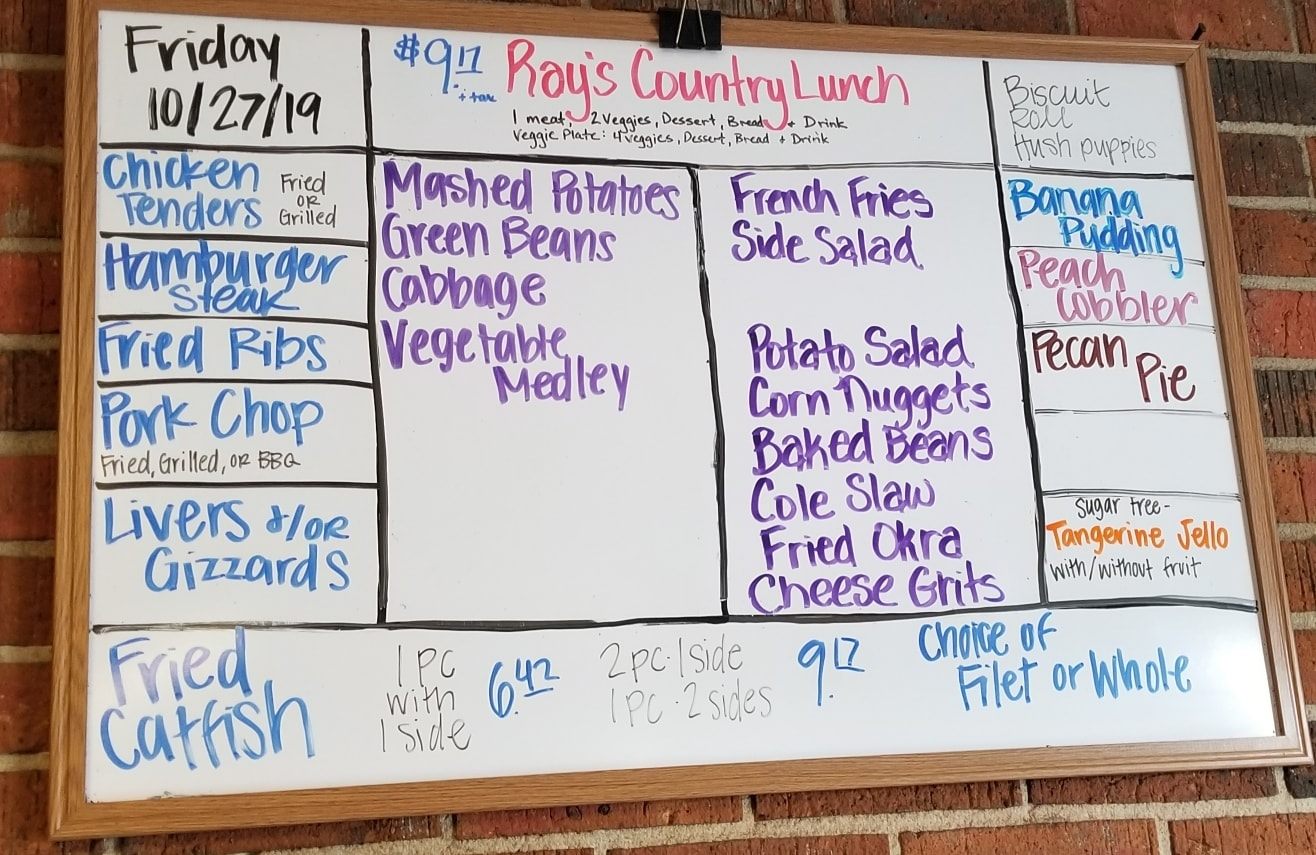 Friday
10/27/19
$9.17
+ tax
Ray's Country Lunch
1 meat, 2 Veggies, Dessert, Bread + Drink
Veggie Plate: 4 Veggies, Dessert, Bread + Drink
Biscuit
Roll
Hush puppies
Chicken
Tenders
Fried
OR
Grilled
Hamburger
Steak
Fried Ribs
Pork Chop
Fried, Grilled, OR BBQ
Livers &/OR
Gizzards
Mashed Potatoes
Green Beans
Cabbage
Vegetable
Medley
French Fries
Side Salad
Potato Salad
Corn Nuggets
Baked Beans
Cole Slaw
Fried Okra
Cheese Grits
Banana
Pudding
Peach
Cobbler
Pecan
Pie
Sugar tree-
Tangerine Jello
with/without fruit
Fried
Catfish
1 PC
with
1 side
6.42
2 pc · 1 side
1 pc · 2 sides
9.17
Choice of
Filet or Whole